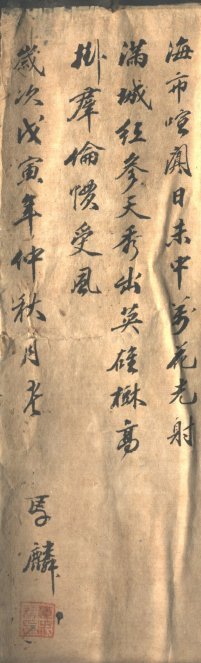 海市喧阗日未中萬花光射
滿城红參天秀出英雄樹高
掛羣倫慣受風
歲次戊寅年仲秋月書
馬麟